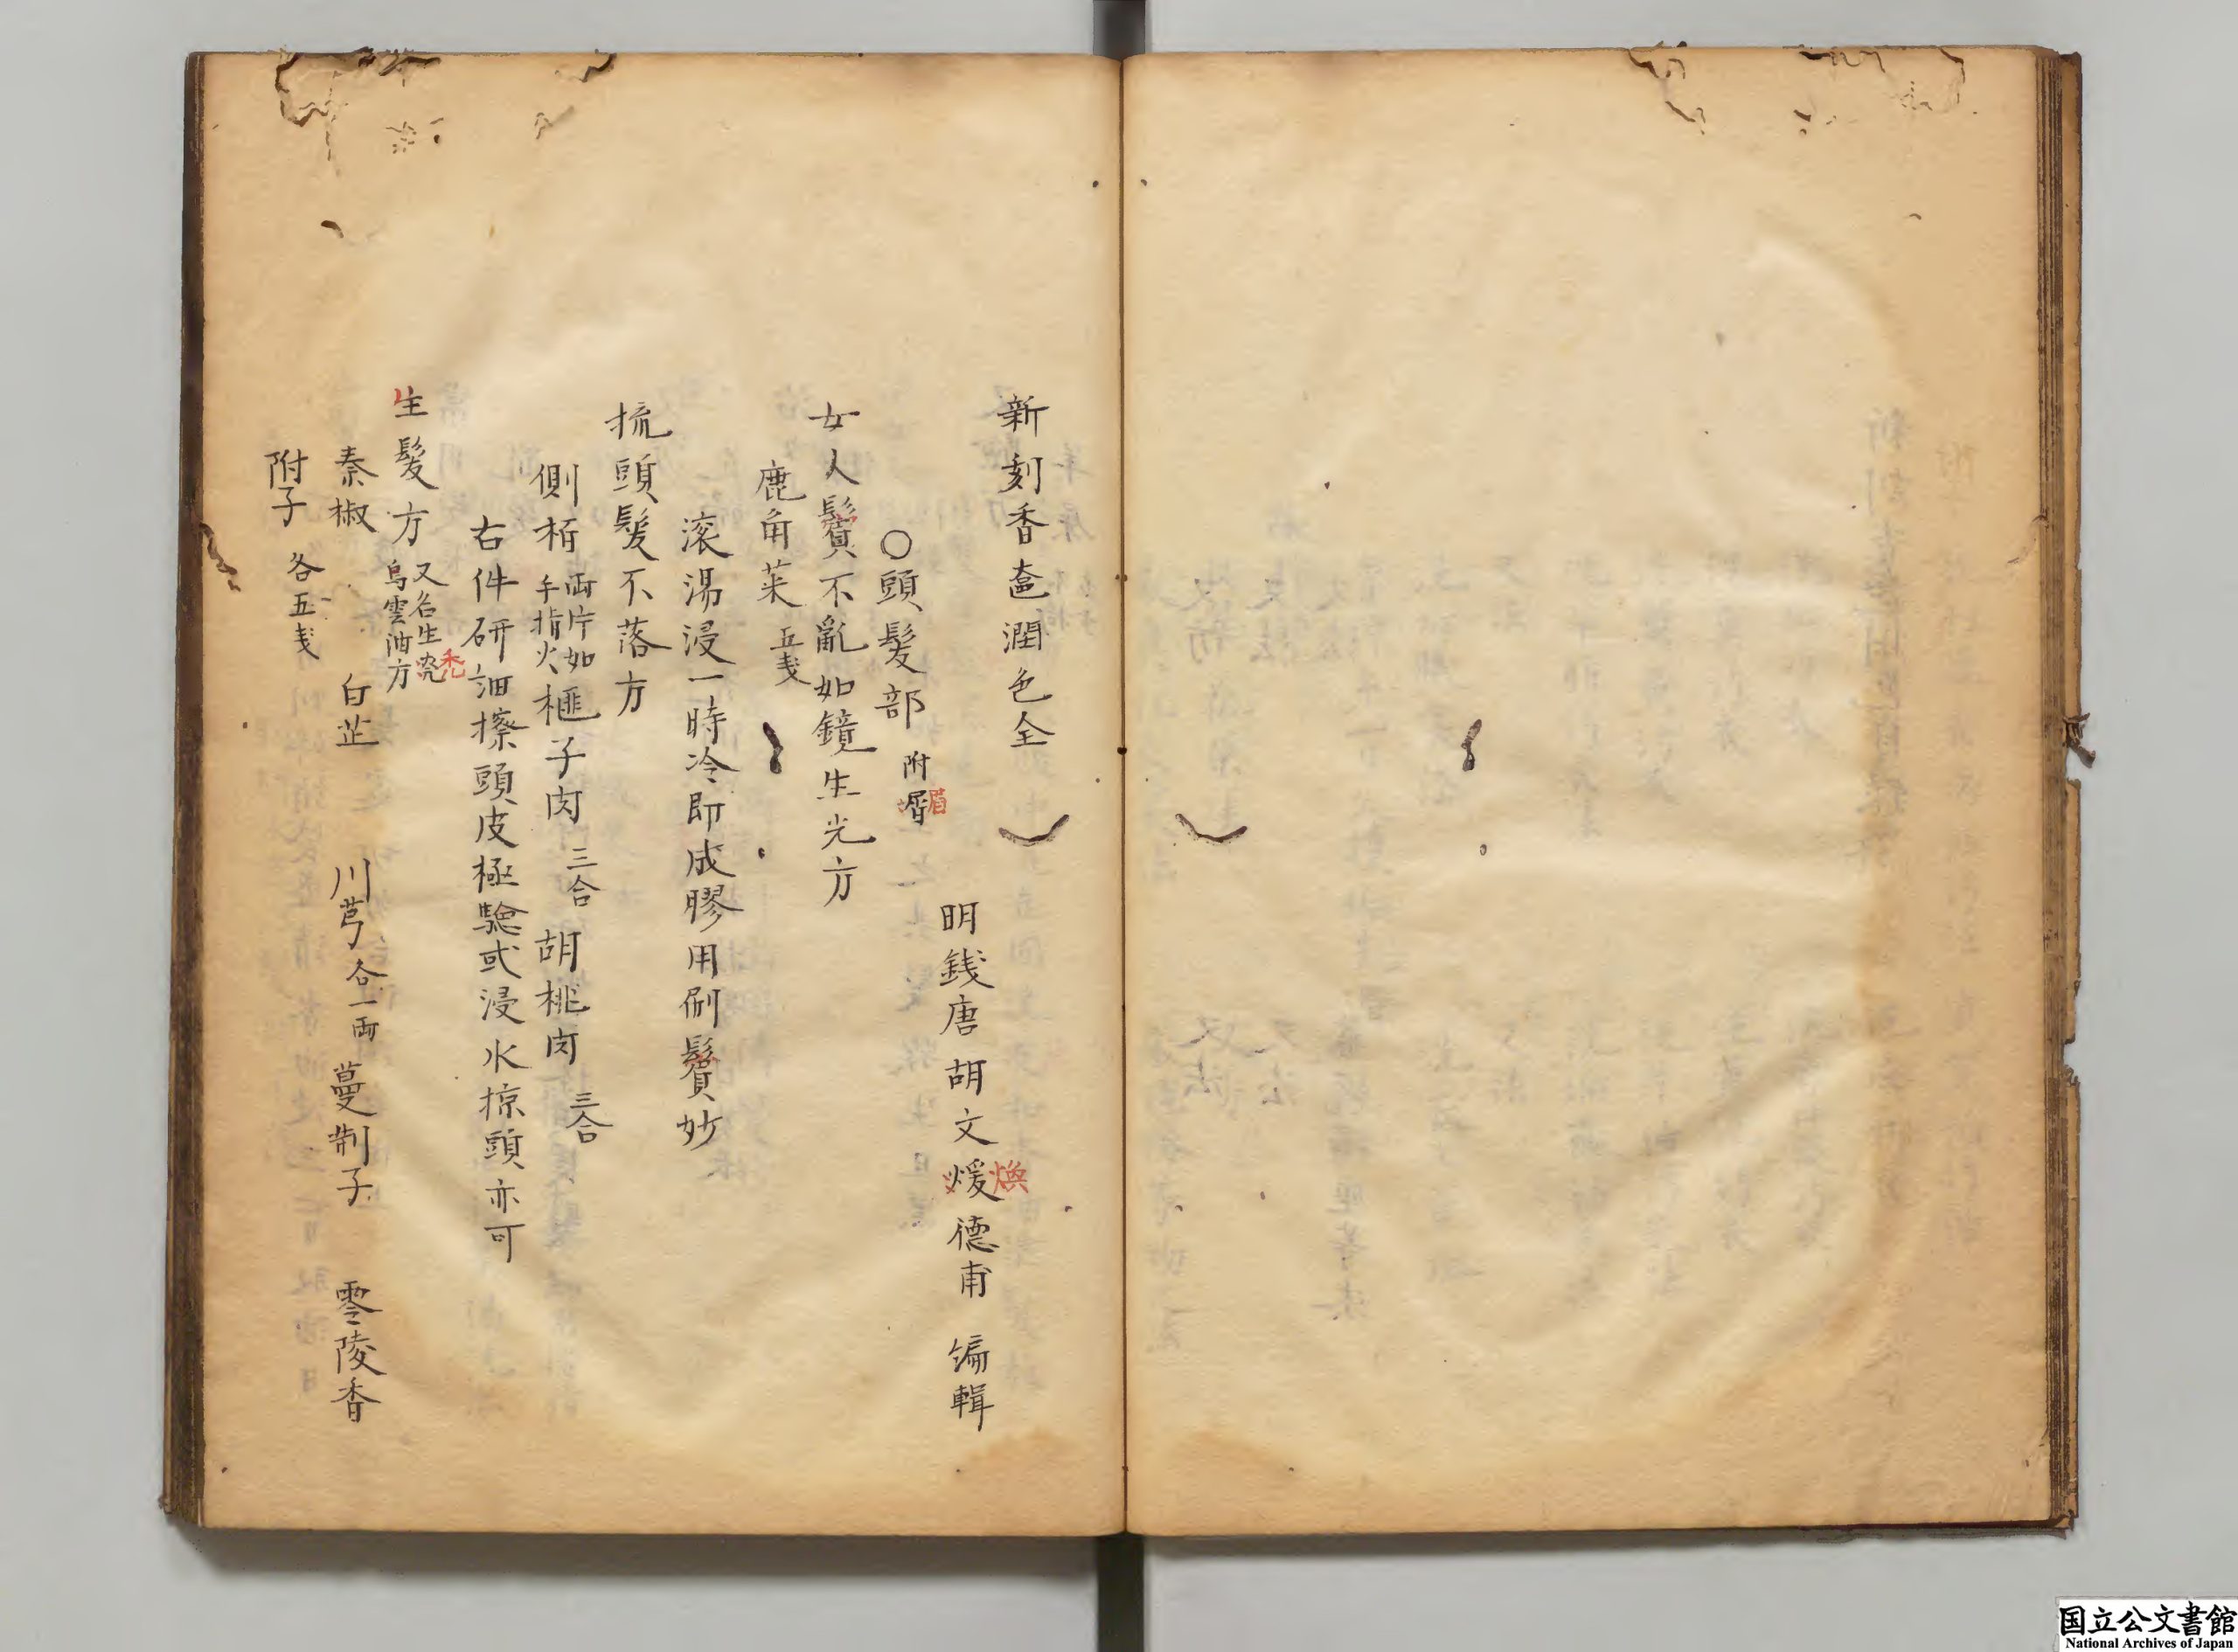 新刻香奩潤色全
明錢唐胡文煖煥德甫 編輯
○頭髮部 附𦞤眉
女人鬢不亂如鏡生光方
鹿角菜 五戔
滚湯浸一時冷即成膠用刷鬢妙
梳頭髮不落方
側栢 兩片如手指大 榧子肉 三合 胡桃肉 三合
右件研細擦頭皮極驗或浸水掠頭亦可
生髮方 又名生禿烏雲油方
秦椒 白芷 川芎 各一両 蔓荊子 零陵香
附子 各五戔
国立公文書館
National Archives of Japan